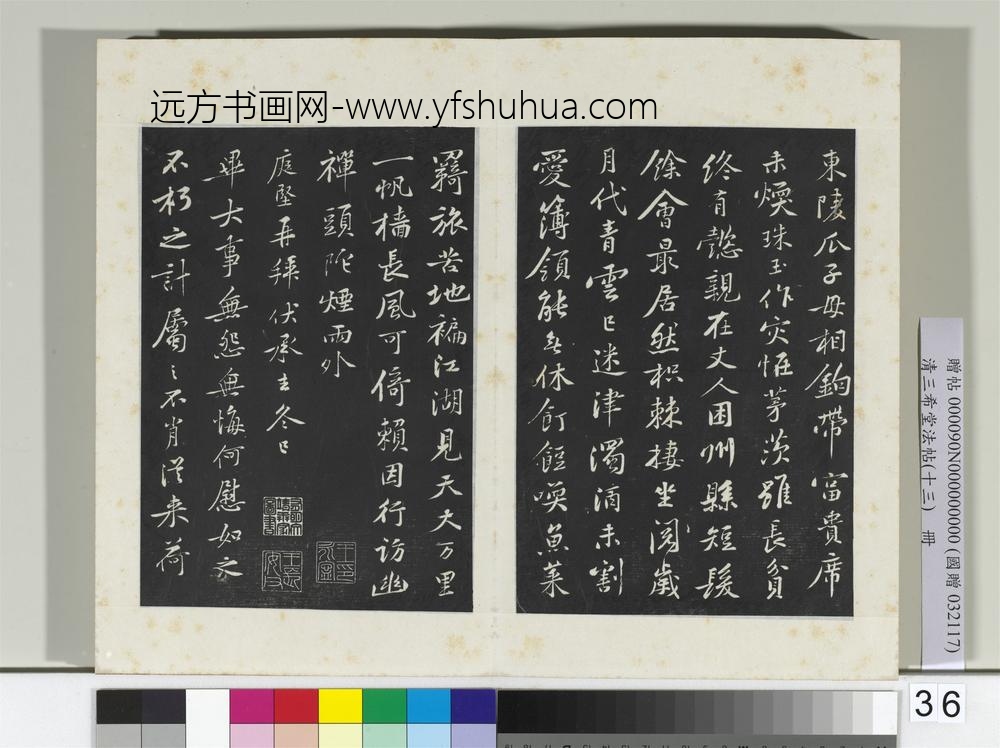 远方书画网-www.yfshuhua.com
東陵瓜子母相鉤帶富貴席
未煗珠玉作灾怪茅茨雖長貧
終有懿親在丈人困州縣短髮
餘會最居然枳棘棲坐閱歲
月代青雲已迷津濁酒未割
愛簿領能無休飣餖喚魚菜
羇旅苦地褊江湖見天大万里
一帆檣長風可倚賴因行訪幽
禪頭陀煙雨外
庭堅再拜伏承去冬已
畢大事無怨無悔何慰如之
不朽之計屬之不肖從来荷
贈帖 000090N000000000 (國贈 032117)
清三希堂法帖(十三) 冊
36